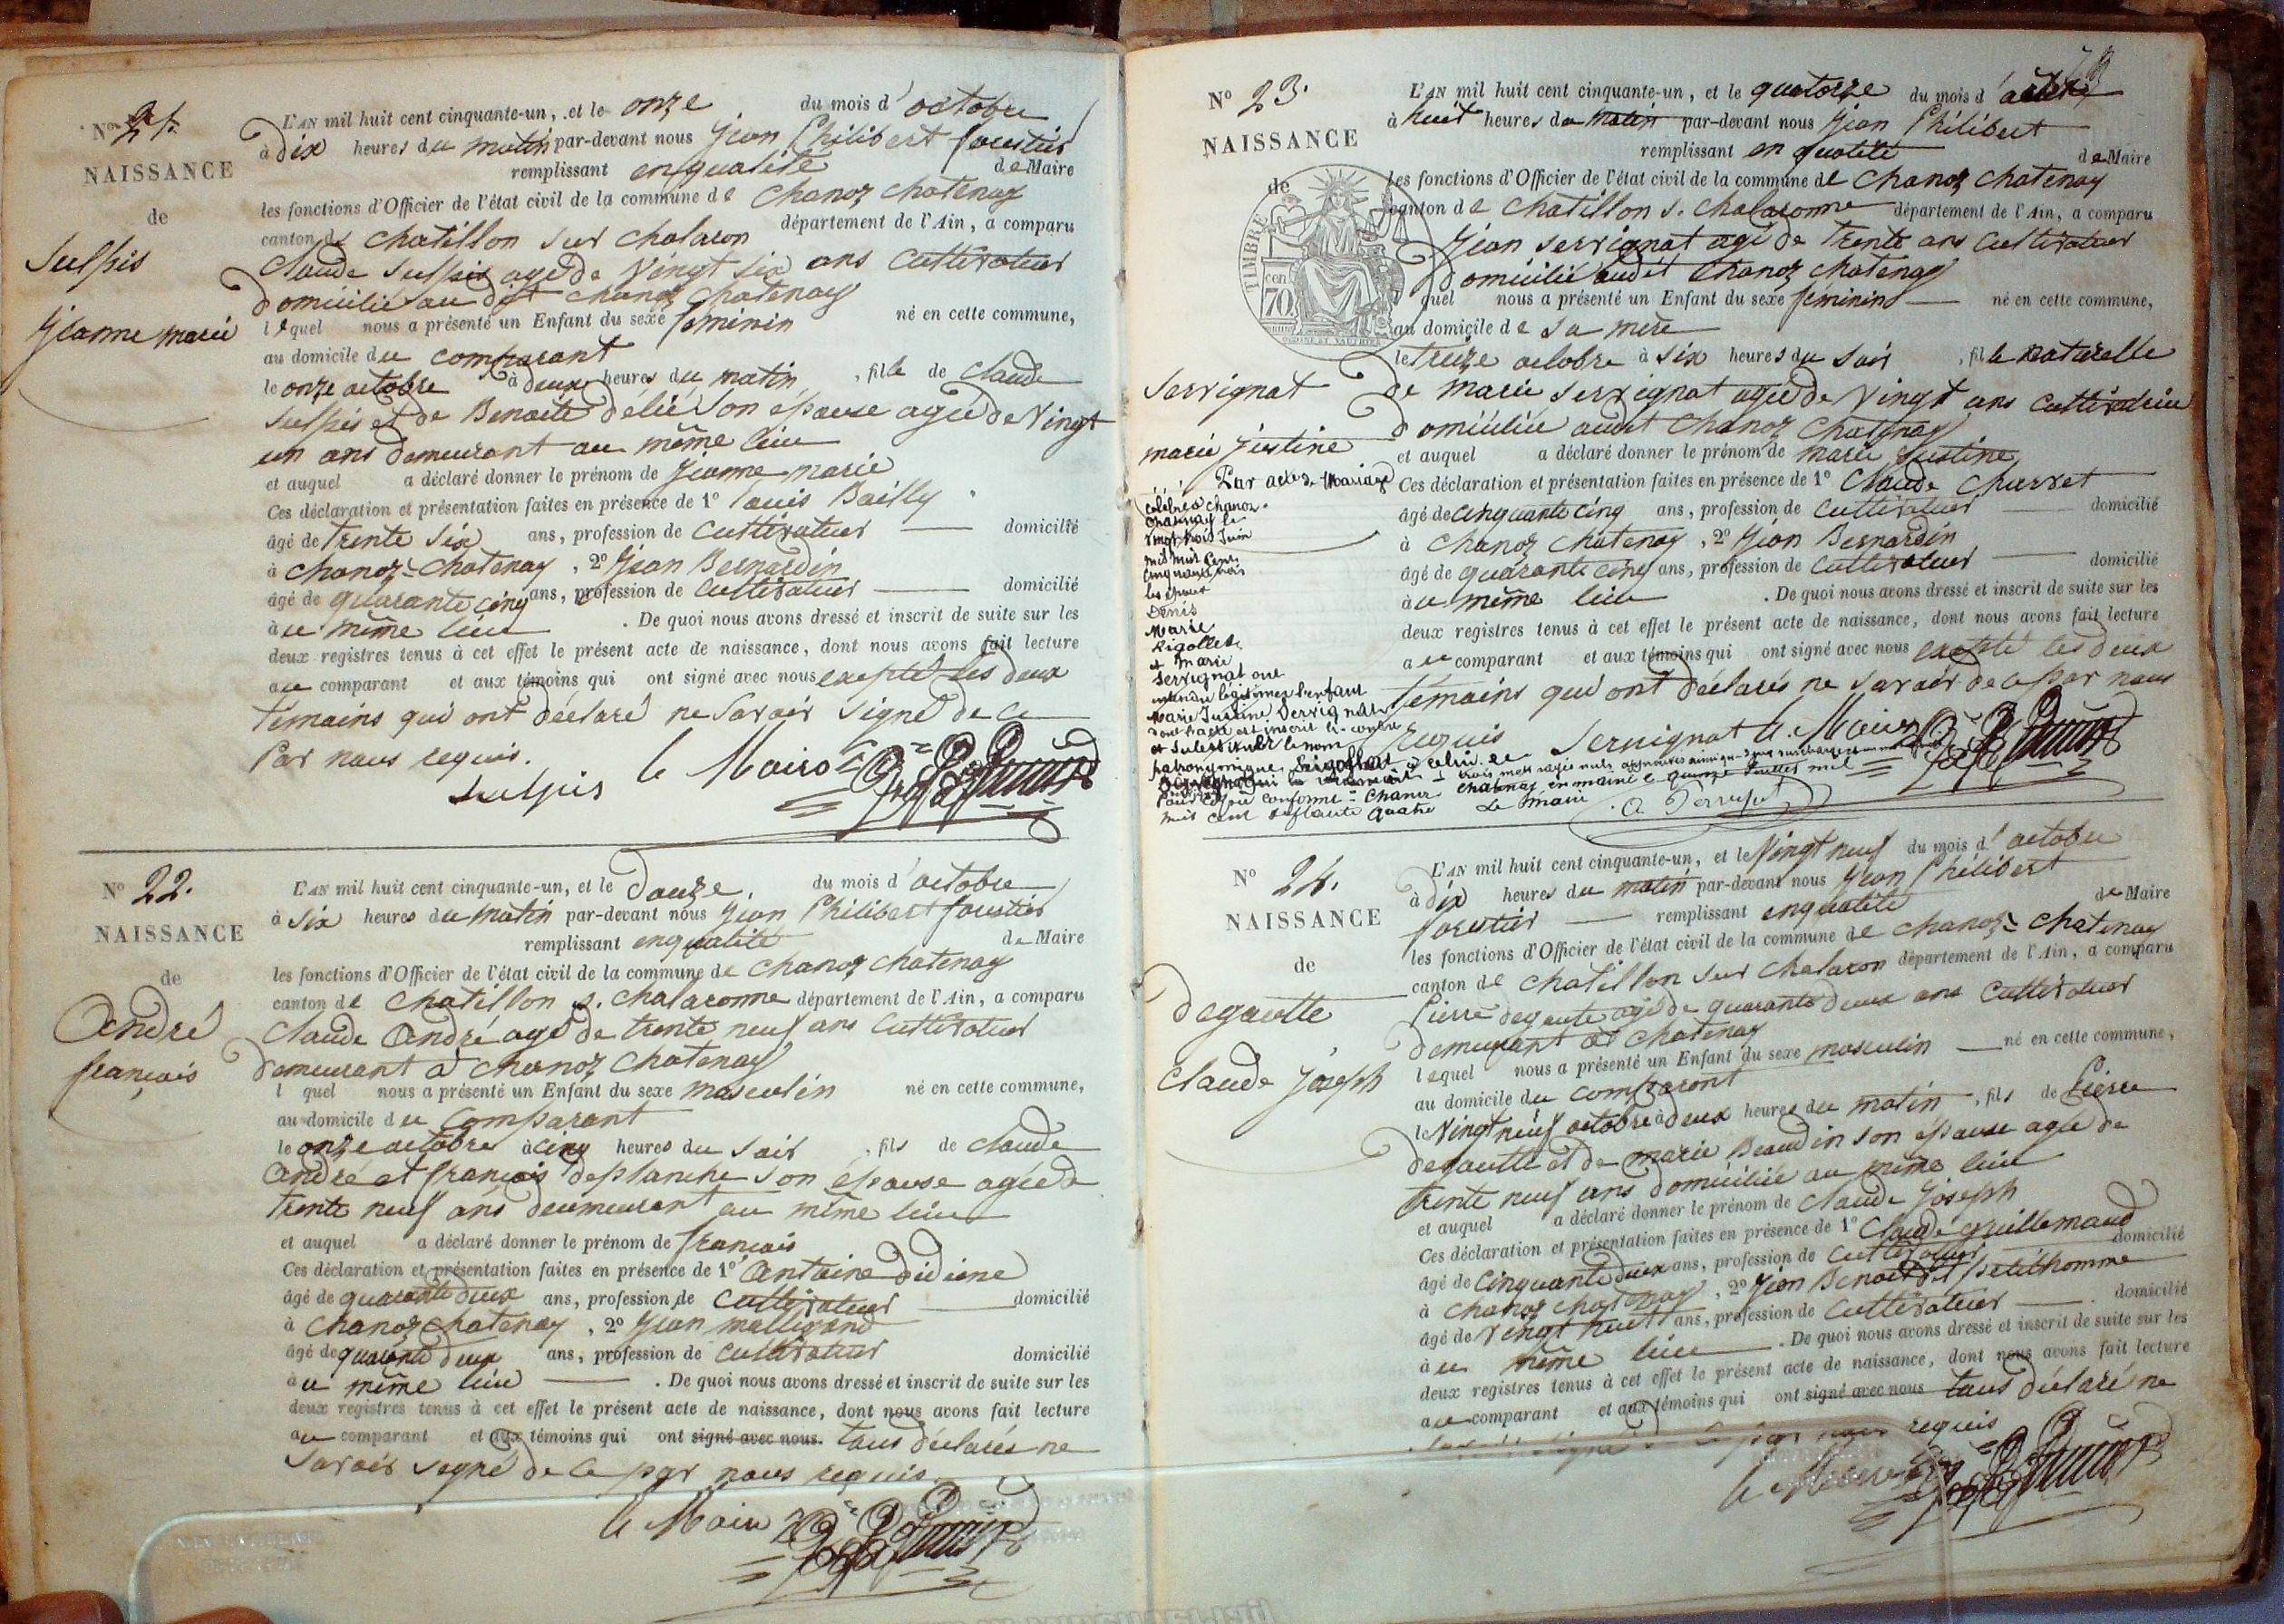 N° 21.
NAISSANCE
de
Sulpis
Jeanne marie
L'AN mil huit cent cinquante-un, et le onze du mois d'octobre
à dix heures du matin par-devant nous Jean Philibert forestier
remplissant en qualité de Maire
les fonctions d'Officier de l'état civil de la commune de Chanoz chatenay
canton de chatillon sur chalaron département de l'Ain, a comparu
Claude Sulpis agé de vingt six ans cultivateur
domicilié au dit chanoz chatenay
lequel nous a présenté un Enfant du sexe féminin né en cette commune,
au domicile du comparant
le onze octobre à deux heures du matin, fille de claude
Sulpis et de Benoite délié son épouse agée de vingt
un ans demeurant au même lieu
et auquel a déclaré donner le prénom de Jeanne marie
Ces déclaration et présentation faites en présence de 1° louis Bailly
âgé de trente six ans, profession de cultivateur domicilié
à chanoz-chatenay, 2° Jean Bernardin
âgé de quarante cinq ans, profession de cultivateur domicilié
au même lieu. De quoi nous avons dressé et inscrit de suite sur les
deux registres tenus à cet effet le présent acte de naissance, dont nous avons fait lecture
au comparant et aux témoins qui ont signé avec nous excepté les deux
témoins qui ont déclaré ne savoir signé de ce
par nous requis.
Sulpis le Maire
N° 22.
NAISSANCE
de
André
françois
L'AN mil huit cent cinquante-un, et le douze du mois d'octobre
à six heures du matin par-devant nous Jean Philibert forestier
remplissant en qualité de Maire
les fonctions d'Officier de l'état civil de la commune de chanoz chatenay
canton de chatillon s. chalaronne département de l'Ain, a comparu
Claude André agé de trente neuf ans cultivateur
demeurant à chanoz chatenay
l quel nous a présenté un Enfant du sexe masculin né en cette commune,
au domicile du comparant
le onze octobre à cinq heures du soir, fils de claude
André et françois deplanche son épouse agée de
trente neuf ans deumeurant au même lieu
et auquel a déclaré donner le prénom de françois
Ces déclaration et présentation faites en présence de 1° Antoine Didiene
âgé de quarante deux ans, profession de cultivateur domicilié
à chanoz chatenay, 2° Jean malligand
âgé de quarante deux ans, profession de cultivateur domicilié
au même lieu. De quoi nous avons dressé et inscrit de suite sur les
deux registres tenus à cet effet le présent acte de naissance, dont nous avons fait lecture
au comparant et aux témoins qui ont signé avec nous tous déclarés ne
savoir segné de ce par nous requis.
le Maire
N° 23.
NAISSANCE
de
TIMBRE
70 cen
Servignat
marie Justine
L'AN mil huit cent cinquante-un, et le quatorze du mois d'octobre
à huit heures du matin par-devant nous Jean Philibert
remplissant en qualité de Maire
les fonctions d'Officier de l'état civil de la commune de chanoz chatenay
canton de chatillon s. chalaronne département de l'Ain, a comparu
Jean Servignat agé de trente ans cultivateur
domicilié audit chanoz chatenay
l quel nous a présenté un Enfant du sexe féminins né en cette commune,
au domicile de sa mère
le treize octobre à six heures du soir, fille naturelle
de marie servignat agée de vingt ans cultivatrice
domiciliée audit Chanoz Chatenay
et auquel a déclaré donner le prénom de marie Justine
Ces déclaration et présentation faites en présence de 1° Claude Churret
âgé de cinquante cinq ans, profession de cultivateur domicilié
à chanoz chatenay, 2° Jean Bernardin
âgé de quarante cinq ans, profession de cultivateur domicilié
au même lieu. De quoi nous avons dressé et inscrit de suite sur les
deux registres tenus à cet effet le présent acte de naissance, dont nous avons fait lecture
au comparant et aux témoins qui ont signé avec nous excepté les deux
témoins qui ont déclarés ne savoir de ce par nous
requis Servignat le Maire
Par acte de Mariage
célébré à chanoz-
chatenay le
vingt trois Juin
mil huit cent
cinquante trois
les époux
Denis
Marie
Rigollet
et Marie
Servignat ont
entendu légitimer l'enfant
Marie Justine Servignat
dont l'acte est inscrit ci-contre
et substituer le nom
patronymique Rigollet à celui de
Servignat
Pour copie conforme = Chanoz chatenay en mairie le quinze Juillet mil
huit cent soixante quatre Le Maire
N° 24.
NAISSANCE
de
degautte
claude Joseph
L'AN mil huit cent cinquante-un, et le vingt neuf du mois d'octobre
à dix heures du matin par-devant nous Jean Philibert
forestier remplissant en qualité de Maire
les fonctions d'Officier de l'état civil de la commune de chanoz-chatenay
canton de chatillon sur chalaron département de l'Ain, a comparu
Pierre degaute agé de quarante deux ans cultivateur
demeurant à chatenay
lequel nous a présenté un Enfant du sexe masculin né en cette commune,
au domicile du comparant
le vingt neuf octobre à deux heures du matin, fils de Pierre
degautte et de marie Beaudin son épouse agée de
trente neuf ans domiciliée au même lieu
et auquel a déclaré donner le prénom de claude Joseph
Ces déclaration et présentation faites en présence de 1° Claude guillemaud
âgé de cinquante deux ans, profession de cultivateur domicilié
à chanoz chatenay, 2° Jean Benoit petithomme
âgé de vingt huit ans, profession de cultivateur domicilié
au même lieu. De quoi nous avons dressé et inscrit de suite sur les
deux registres tenus à cet effet le présent acte de naissance, dont nous avons fait lecture
au comparant et aux témoins qui ont signé avec nous tous déclaré ne
savoir signé de ce par nous requis
le Maire